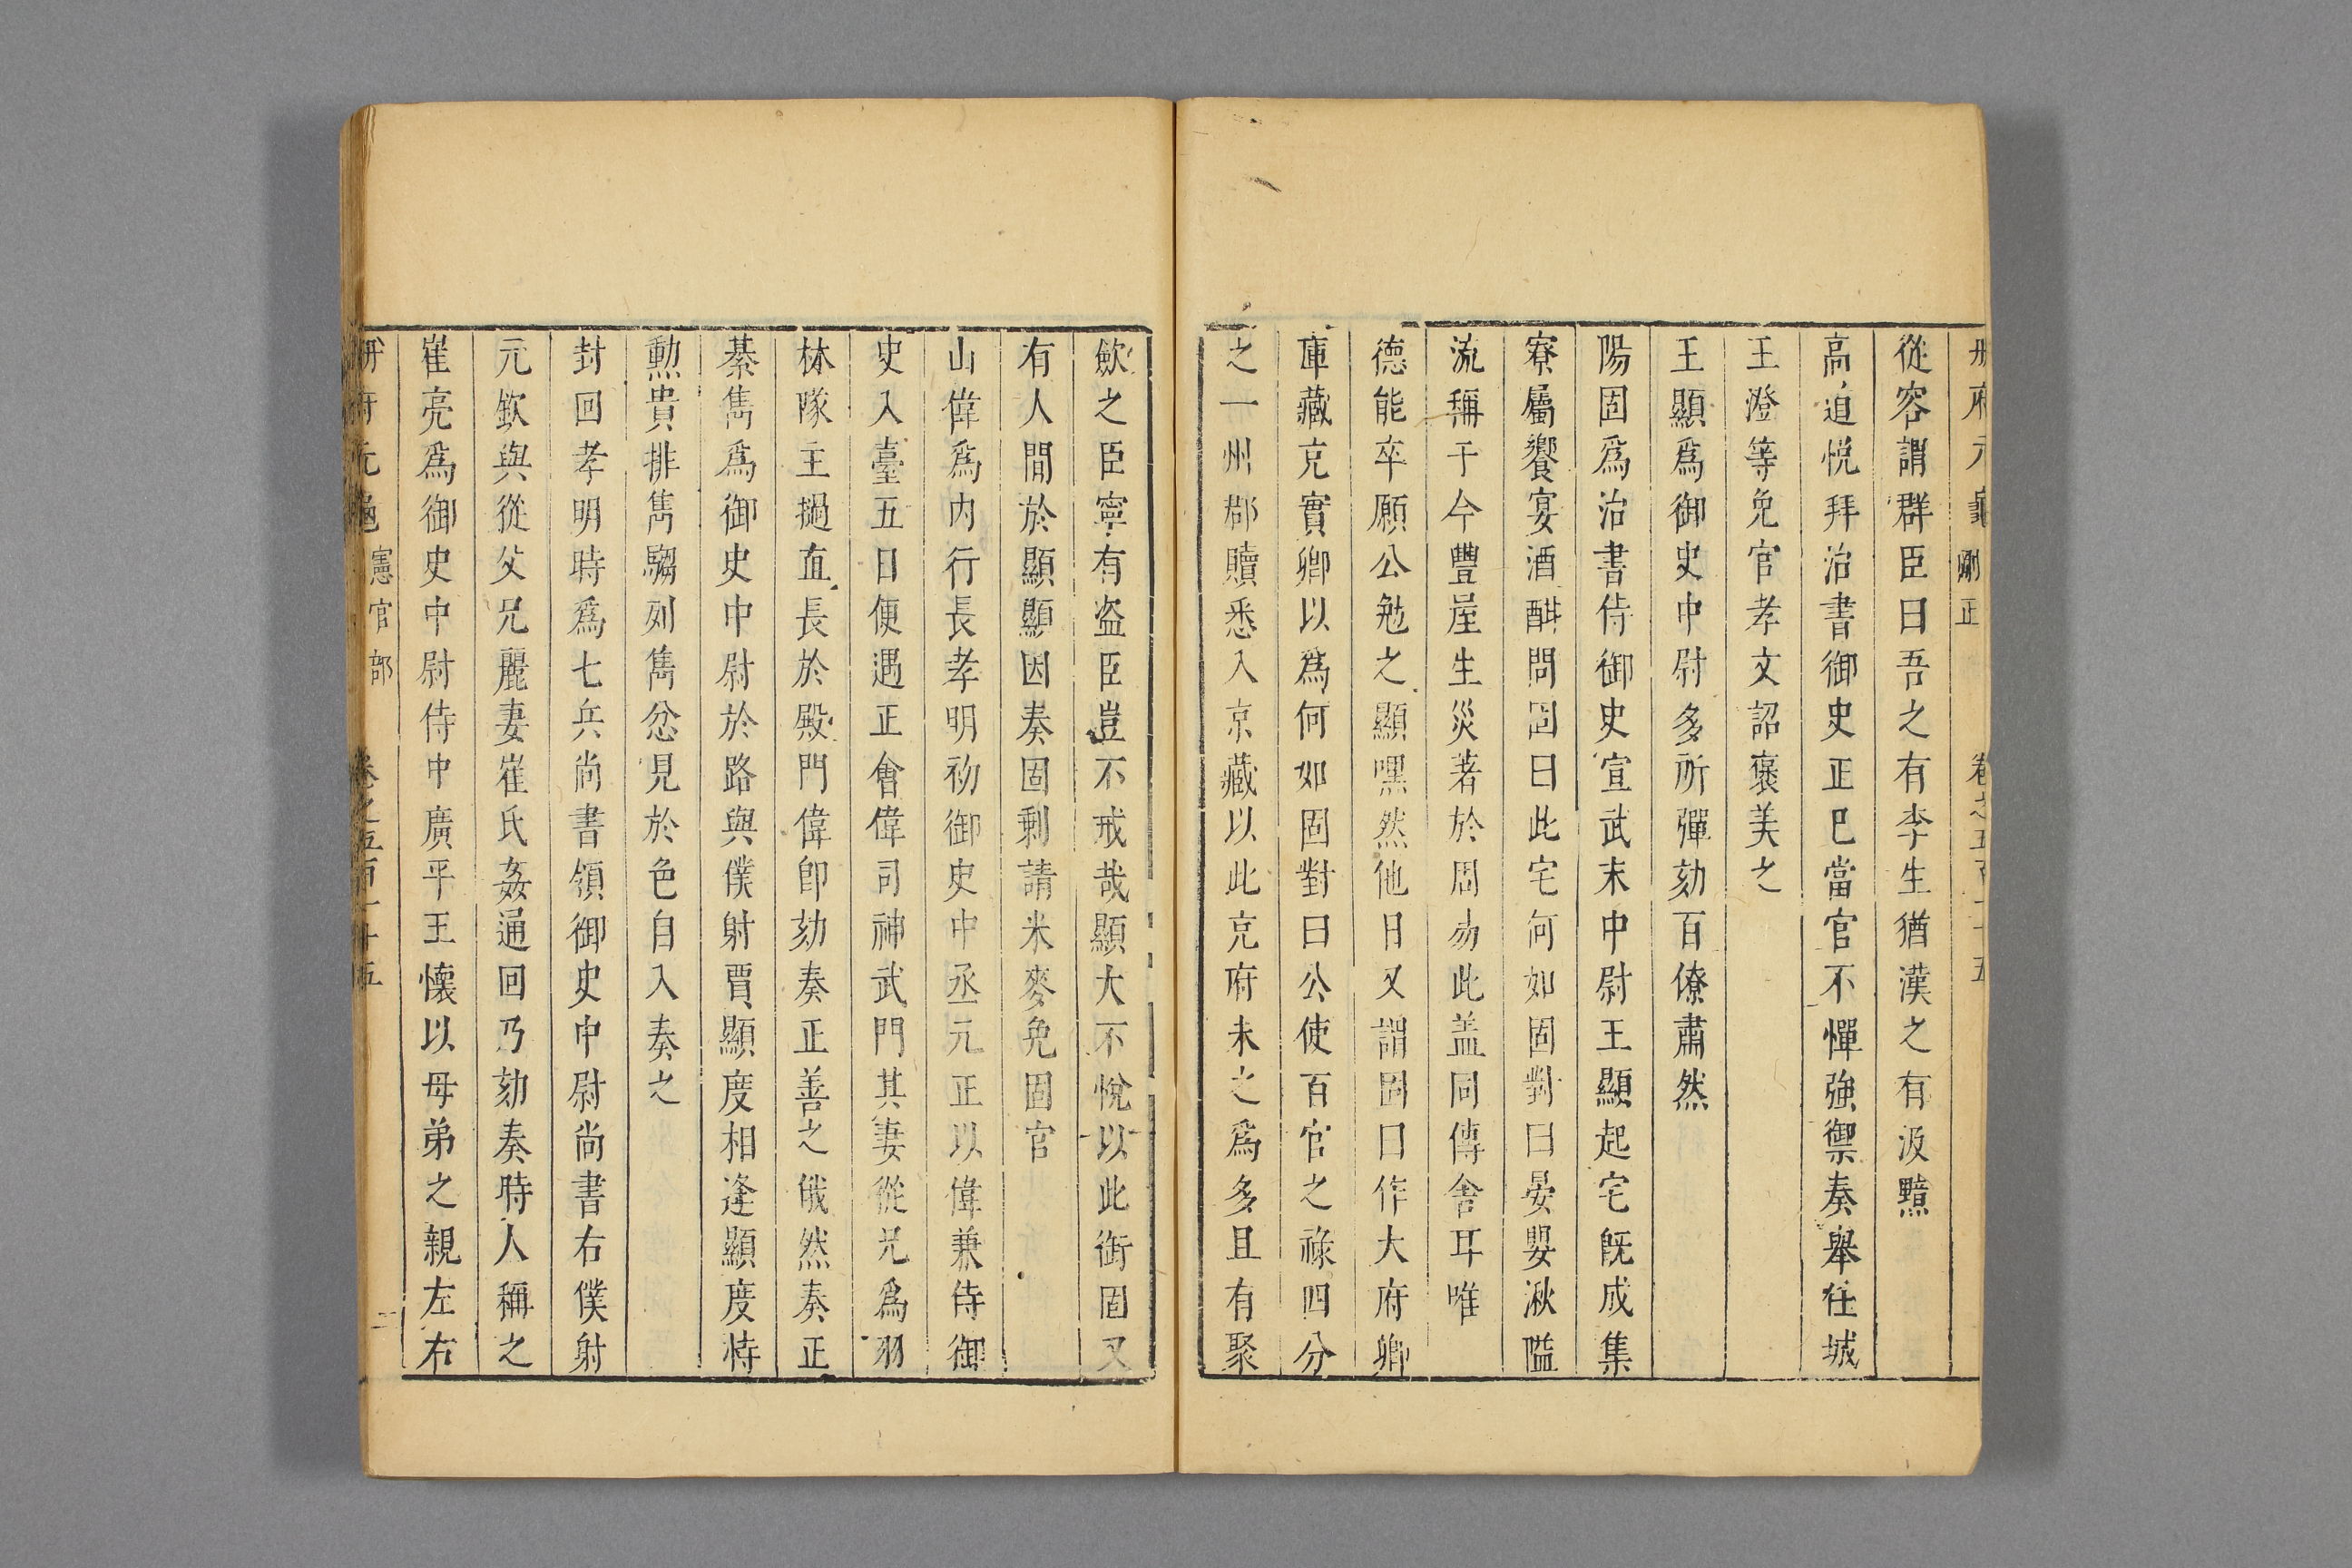 冊府元龜 剛正 卷之五百一十五
從容謂群臣曰吾之有李生猶漢之有汲黯
高道悅拜治書御史正已當官不憚強禦奏舉任城
王澄等免官孝文詔褒美之
王顯爲御史中尉多所彈劾百僚肅然
陽固爲治書侍御史宣武末中尉王顯起宅旣成集
寮屬饗宴酒酣問固曰此宅何如固對曰晏嬰湫隘
流稱于今豐屋生災著於周易此盖同傳舍耳唯
德能卒願公勉之顯嘿然他日又謂固曰作大府卿
庫藏充實卿以爲何如固對曰公使百官之祿四分
之一州郡贖悉入京藏以此充府未之爲多且有聚
歛之臣寧有盗臣豈不戒哉顯大不悅以此銜固又
有人間於顯顯因奏固剩請米麥免固官
山偉爲内行長孝明初御史中丞元正以偉兼侍御
史入臺五日便遇正會偉司神武門其妻從兄爲羽
林隊主撾直長於殿門偉卽劾奏正善之俄然奏正
綦雋爲御史中尉於路與僕射賈顯度相逢顯度恃
勲貴排雋騶列雋忿見於色自入奏之
封回孝明時爲七兵尚書領御史中尉尚書右僕射
元欽與從父兄麗妻崔氏姦通回乃劾奏時人稱之
崔亮爲御史中尉侍中廣平王懷以母弟之親左右
冊府元龜 憲官部 卷之五百一十五 二